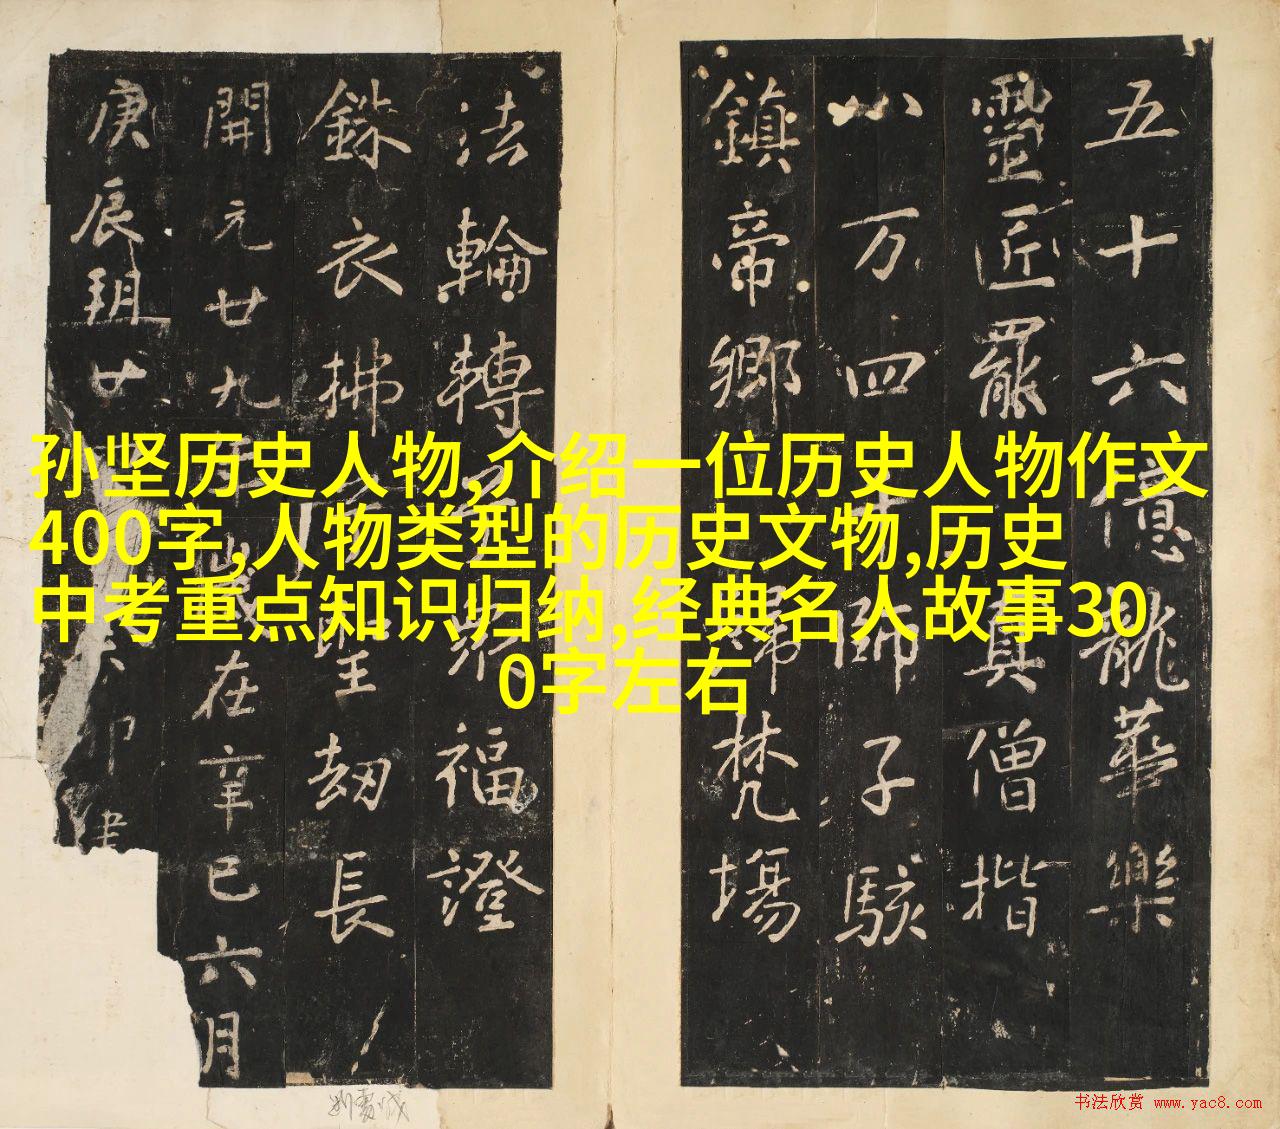 五十六億龍華樂
靈匠罷 真僧揩
八万四千師子駭
鎮帝鄉 歸梵場
法輪轉 福澄
銖衣拂 聖劫長
開元廿九年歲在辛巳六月
庚辰朔廿 六 卯建
孙坚历史人物,介绍一位历史人物作文
400字,人物类型的历史文物,历史
中考重点知识归纳,经典名人故事30
0字左右
书法欣赏 www.yac8.com